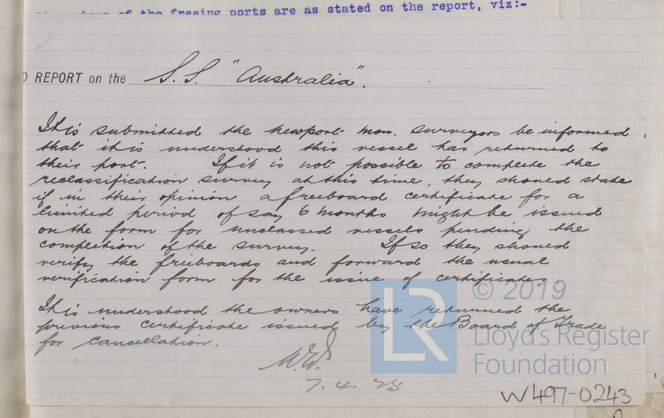 of the freeing ports are as stated on the report, viz:-
REPORT on the S.S. "Australia".
It is submitted the Newport Mon. Surveyors be informed
that it is understood this vessel has returned to
their port. If it is not possible to complete the
reclassification survey at this time, they should state
if in their opinion a freeboard certificate for a
limited period of say 6 months might be issued
on the form for unclassed vessels pending the
completion of the survey. If so they should
verify the freeboards and forward the usual
verification form for the issue of certificate.
It is understood the owners have returned the
previous certificate issued by the Board of Trade
for cancellation.
7.4.25
© 2019
LR
Lloyd's Register
Foundation
W497-0243